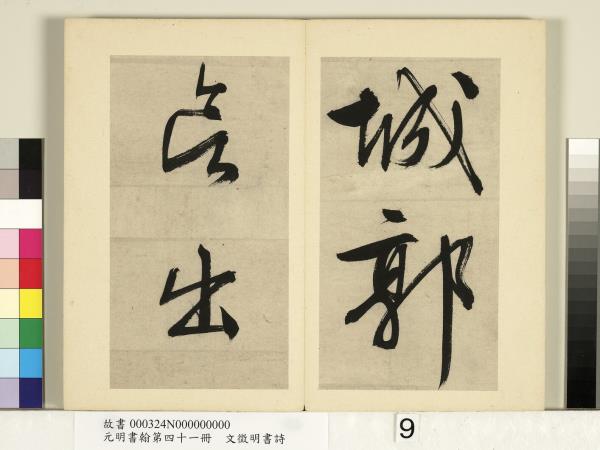 城郭
出
故書 000324N000000000
元明書翰第四十一冊 文徵明書詩
9